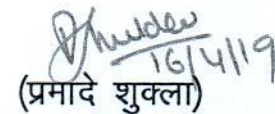 16/4/19
(प्रमादे शुक्ला)